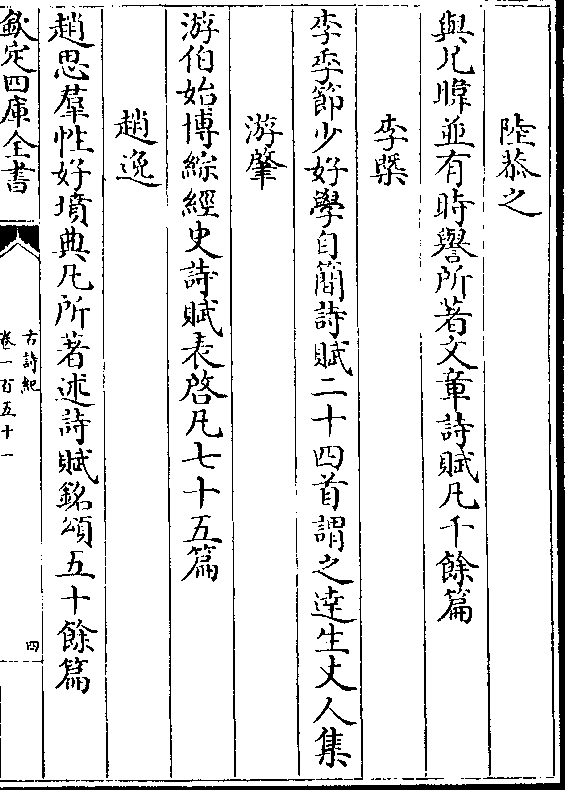 陸㳟之
與兄暐並有時譽所著文章詩賦凡千餘篇
李槩
李季節少好學自簡詩賦二十四首謂之達生丈人集
游肇
游伯始博綜經史詩賦表啓凡七十五篇
趙逸
趙思羣性好墳典凡所著述詩賦銘頌五十餘篇
欽定四庫全書
古詩紀
卷一百五十一
四